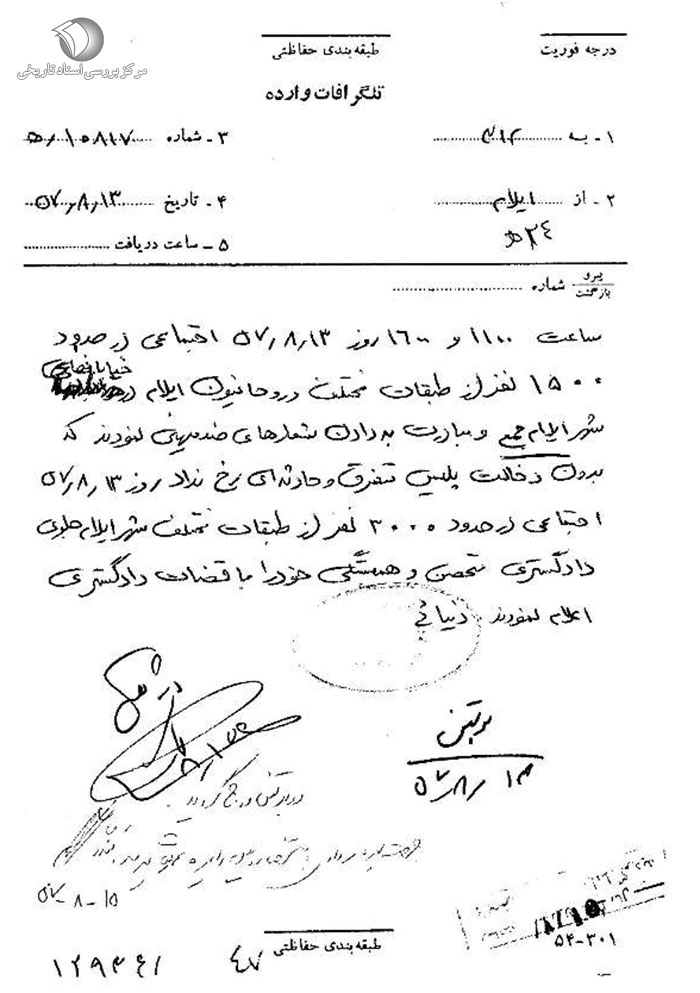 مرکز بررسی اسناد تاریخی
درجه فوریت
طبقه‌بندی حفاظتی
تلگرافات وارده
۱ - به ۳۱۲
۳ - شماره
۲ - از ایلام
۴ - تاریخ ۵۷٫۸٫۱۳
۵ - ساعت دریافت
پیرو
بازگشت
شماره
ساعت ۱۱۰۰ و ۱۶۰۰ روز ۵۷٫۸٫۱۳ اجتماعی در حدود
۱۵۰۰ نفر از طبقات مختلف و روحانیون ایلام در خیابانهای
شهر ایلام جمع و مبادرت به دادن شعارهای ضد میهنی نمودند که
بدون دخالت پلیس متفرق و حادثه‌ای رخ نداد روز ۵۷٫۸٫۱۳
اجتماعی در حدود ۳۰۰۰ نفر از طبقات مختلف شهر ایلام جلوی
دادگستری متحصن و همبستگی خود را با قضات دادگستری
اعلام نمودند.
در بولتن درج گردید
۵۷-۸-۱۵
طبقه‌بندی حفاظتی
۵۴-۳۰۱
۴۷